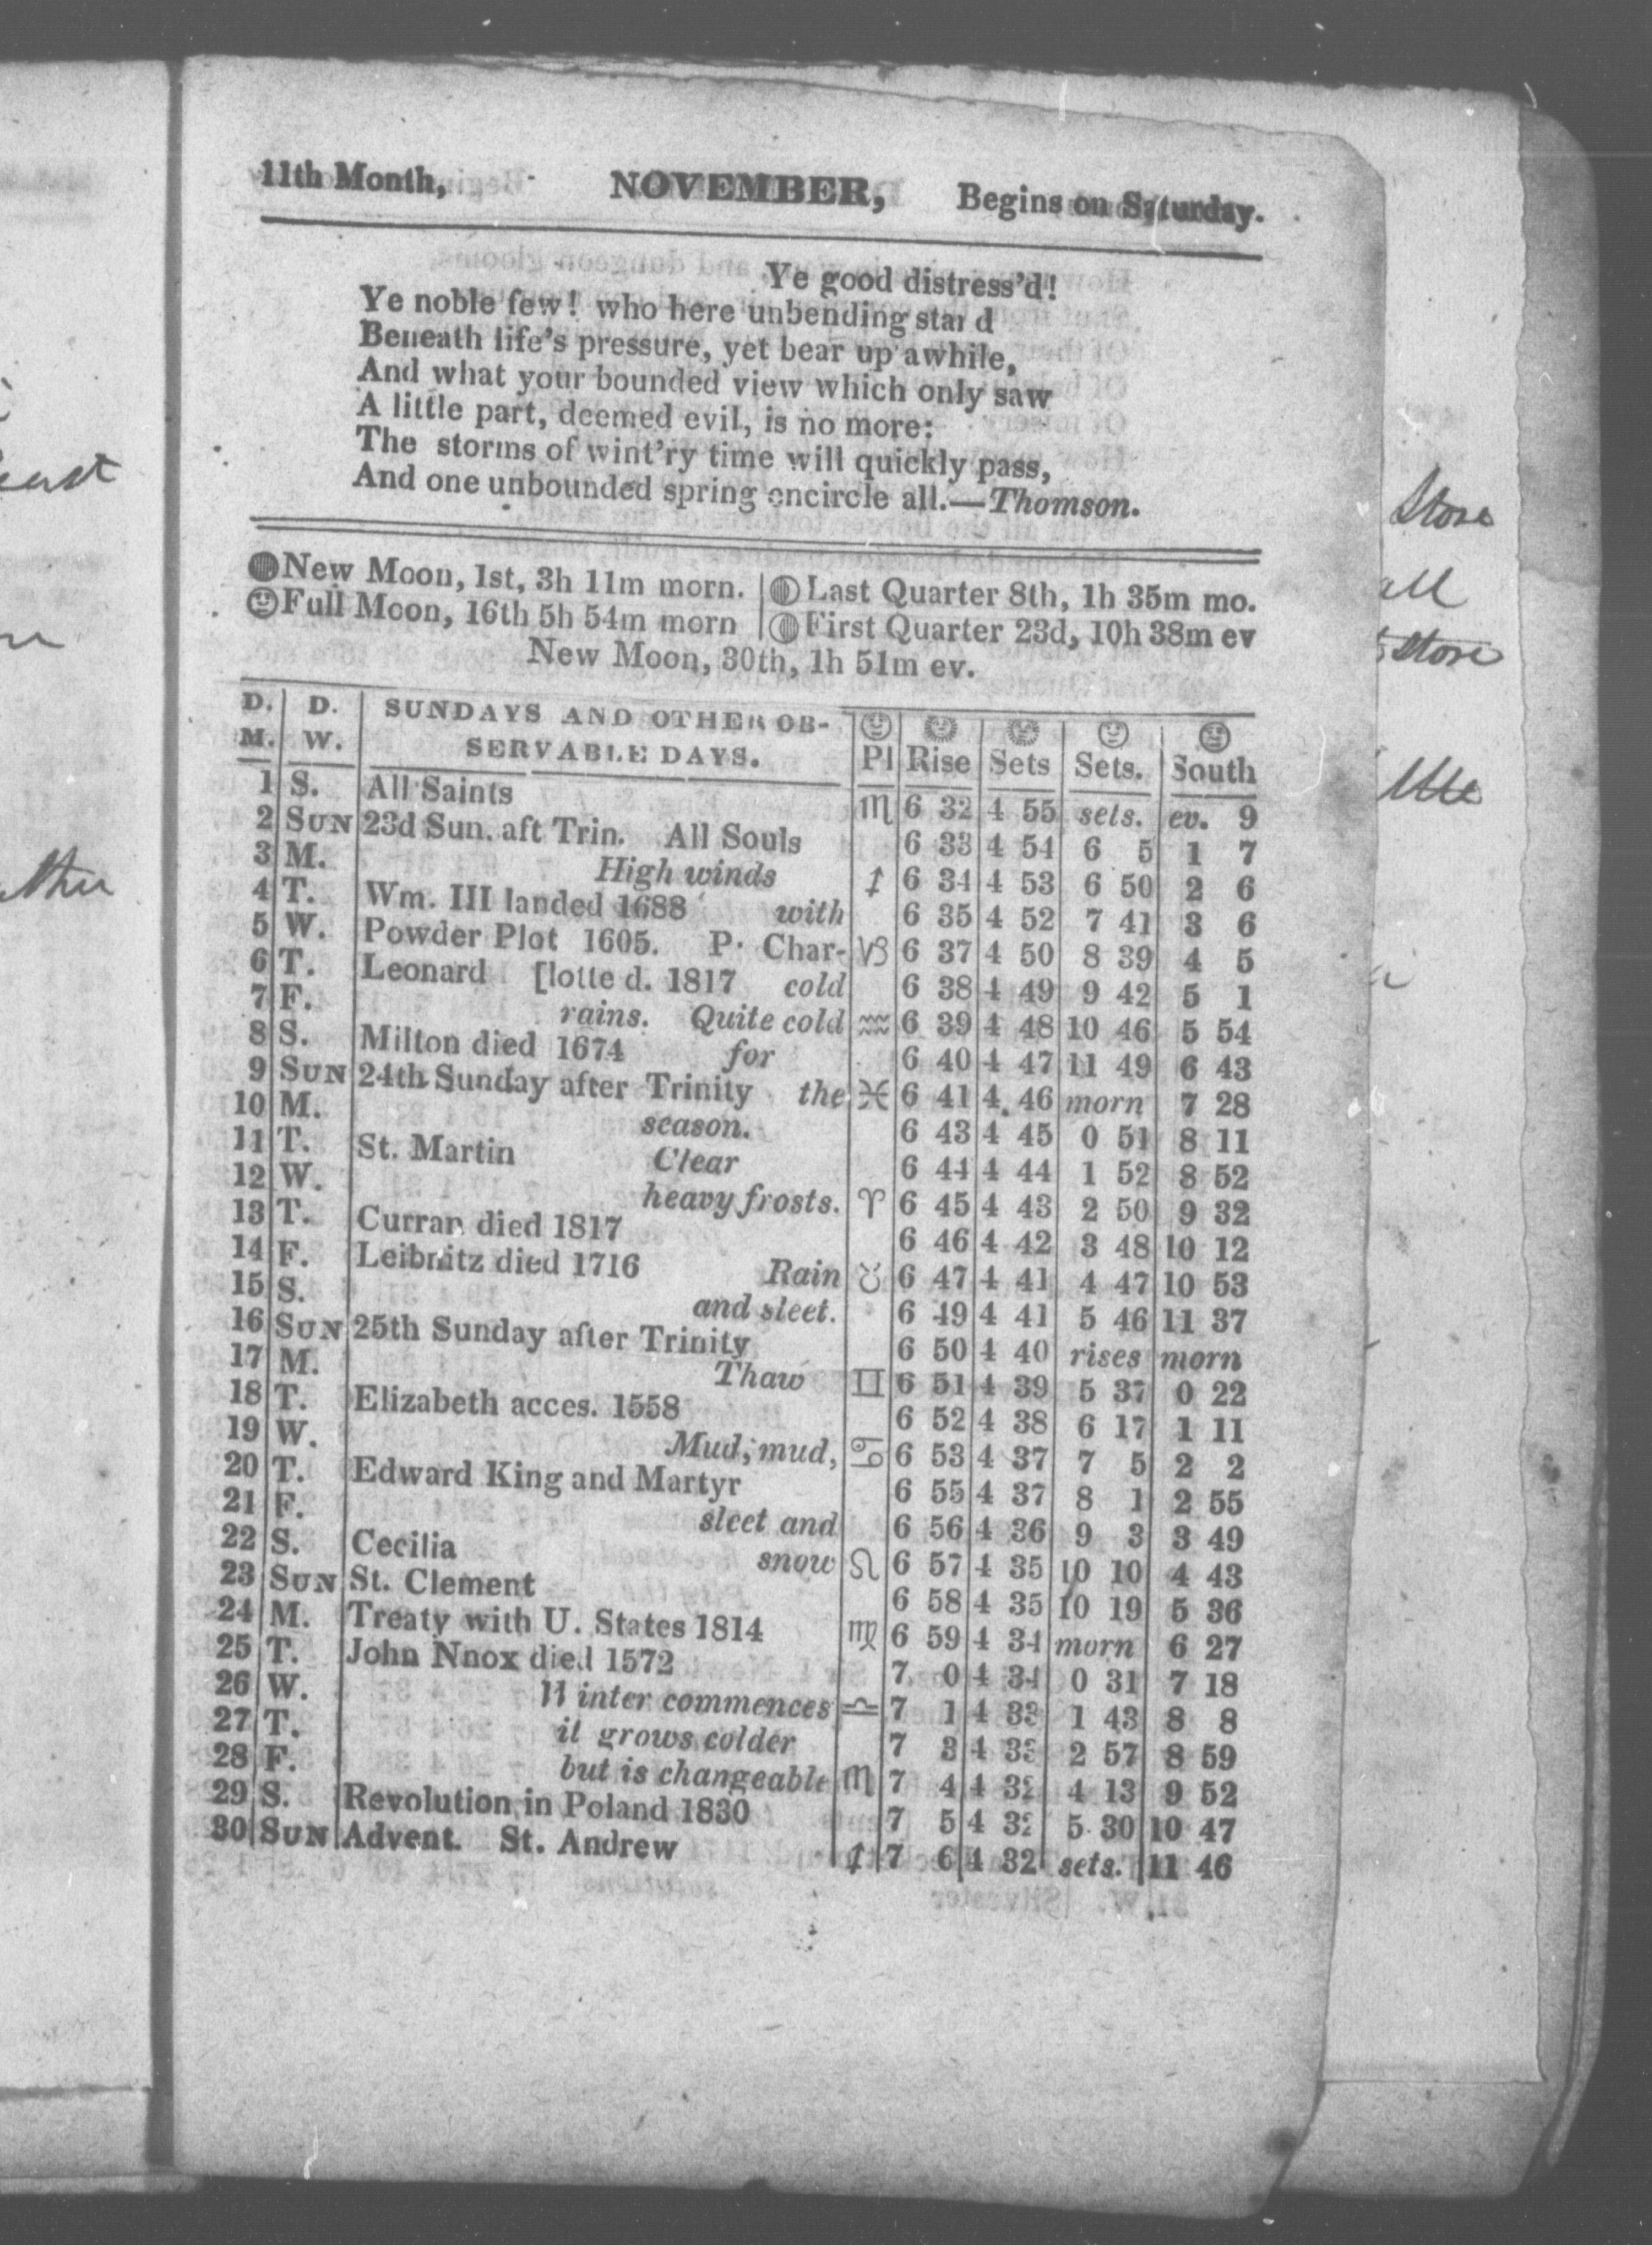 11th Month, NOVEMBER, Begins on Saturday.
Ye good distress'd!
Ye noble few! who here unbending stand
Beneath life's pressure, yet bear up awhile,
And what your bounded view which only saw
A little part, deemed evil, is no more:
The storms of wint'ry time will quickly pass,
And one unbounded spring encircle all.—Thomson.
New Moon, 1st, 3h 11m morn. Last Quarter 8th, 1h 35m mo.
Full Moon, 16th 5h 54m morn First Quarter 23d, 10h 38m ev
New Moon, 30th, 1h 51m ev.
D. M. D. W. SUNDAYS AND OTHER OB-
SERVABLE DAYS. Pl Rise Sets Sets. South
1 S. All Saints ♏ 6 32 4 55 sets. ev. 9
2 SUN 23d Sun. aft Trin. All Souls 6 33 4 54 6 5 1 7
3 M. High winds ♐ 6 34 4 53 6 50 2 6
4 T. Wm. III landed 1688 with 6 35 4 52 7 41 3 6
5 W. Powder Plot 1605. P. Char- ♑ 6 37 4 50 8 39 4 5
6 T. Leonard [lotte d. 1817 cold 6 38 4 49 9 42 5 1
7 F. rains. Quite cold ♒ 6 39 4 48 10 46 5 54
8 S. Milton died 1674 for 6 40 4 47 11 49 6 43
9 SUN 24th Sunday after Trinity the ♓ 6 41 4 46 morn 7 28
10 M. season. 6 43 4 45 0 51 8 11
11 T. St. Martin Clear 6 44 4 44 1 52 8 52
12 W. heavy frosts. ♈ 6 45 4 43 2 50 9 32
13 T. Curran died 1817 6 46 4 42 3 48 10 12
14 F. Leibnitz died 1716 Rain ♉ 6 47 4 41 4 47 10 53
15 S. and sleet. 6 49 4 41 5 46 11 37
16 SUN 25th Sunday after Trinity 6 50 4 40 rises morn
17 M. Thaw ♊ 6 51 4 39 5 37 0 22
18 T. Elizabeth acces. 1558 6 52 4 38 6 17 1 11
19 W. Mud, mud, ♋ 6 53 4 37 7 5 2 2
20 T. Edward King and Martyr 6 55 4 37 8 1 2 55
21 F. sleet and 6 56 4 36 9 3 3 49
22 S. Cecilia snow ♌ 6 57 4 35 10 10 4 43
23 SUN St. Clement 6 58 4 35 10 19 5 36
24 M. Treaty with U. States 1814 ♍ 6 59 4 34 morn 6 27
25 T. John Nnox died 1572 7 0 4 34 0 31 7 18
26 W. Winter commences ♎ 7 1 4 33 1 43 8 8
27 T. it grows colder 7 3 4 33 2 57 8 59
28 F. but is changeable ♏ 7 4 4 32 4 13 9 52
29 S. Revolution in Poland 1830 7 5 4 32 5 30 10 47
30 SUN Advent. St. Andrew ♐ 7 6 4 32 sets. 11 46
Store
all
Store